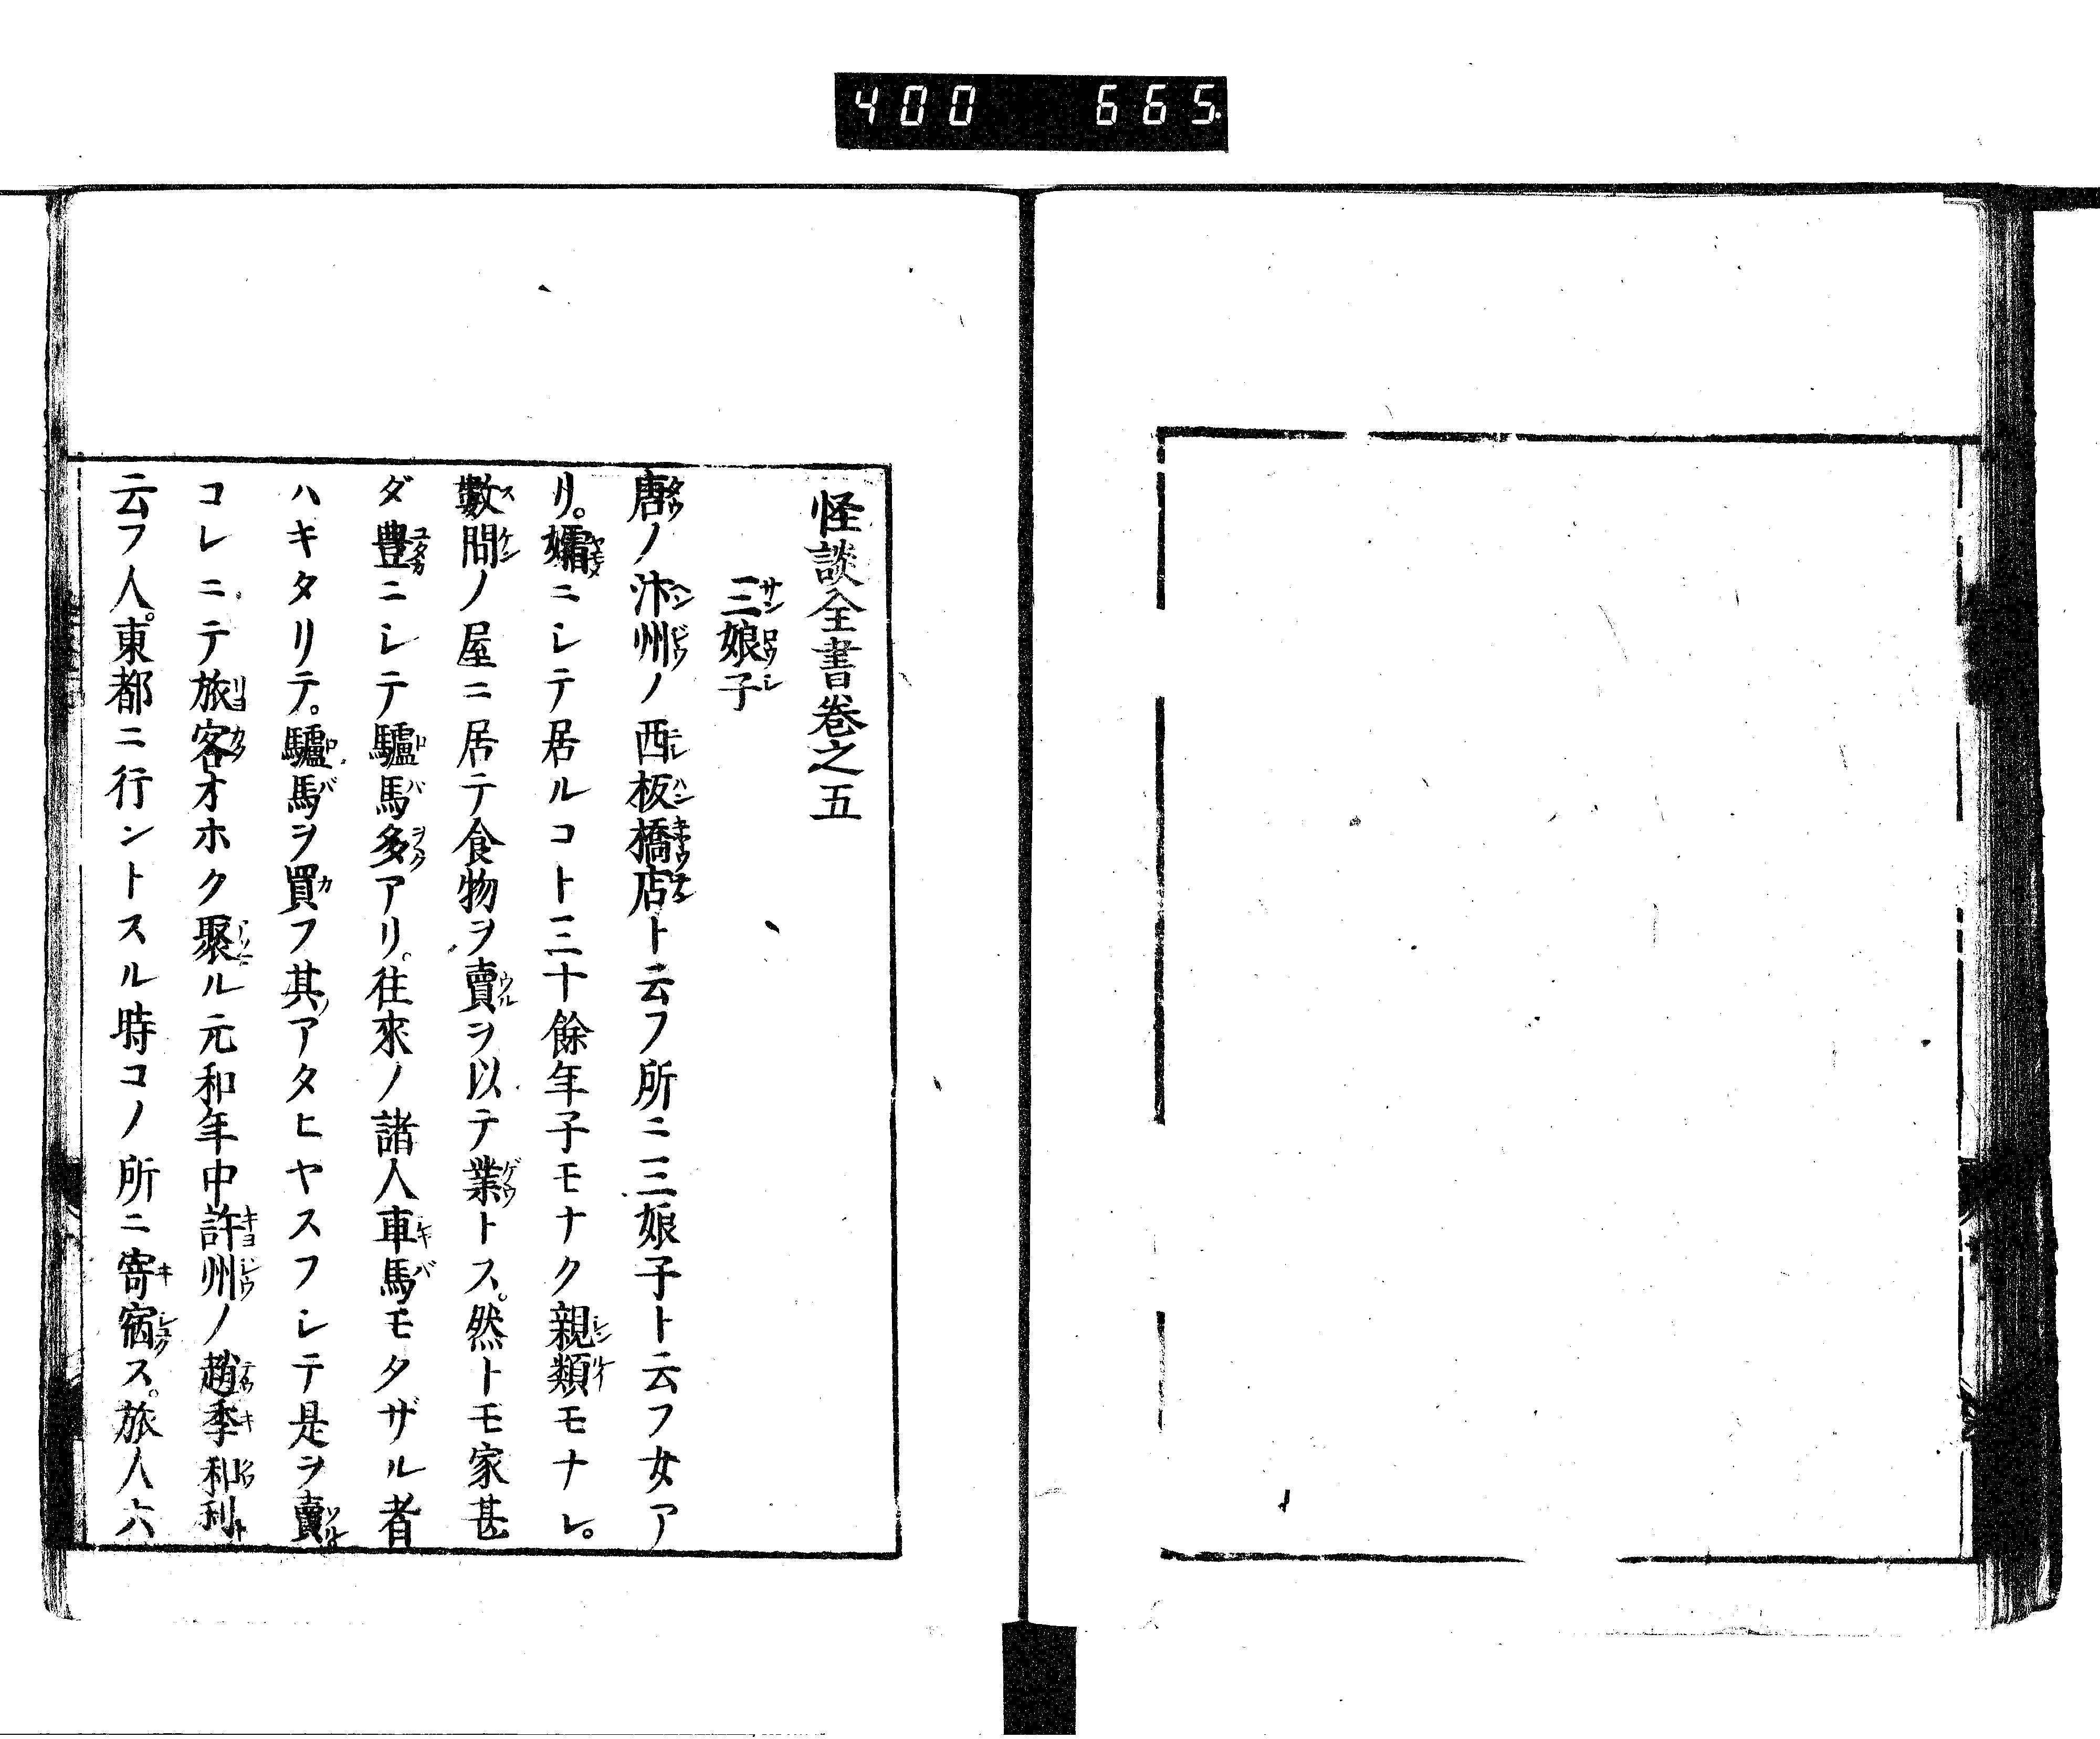 400 665
怪談全書巻之五
三娘子
唐ノ汴州ノ西板橋店ト云フ所ニ三娘子ト云フ女ア
リ。孀ニシテ居ルコト三十餘年子モナク親類モナシ。
數間ノ屋ニ居テ食物ヲ賣ヲ以テ業トス。然トモ家甚
ダ豊ニシテ驢馬多アリ。往來ノ諸人車馬モタザル者
ハキタリテ。驢馬ヲ買フ其アタヒヤスフシテ是ヲ賣
コレニテ旅客オホク聚ル元和年中許州ノ趙季和利ト
云フ人。東都ニ行ントスル時コノ所ニ寄宿ス。旅人六